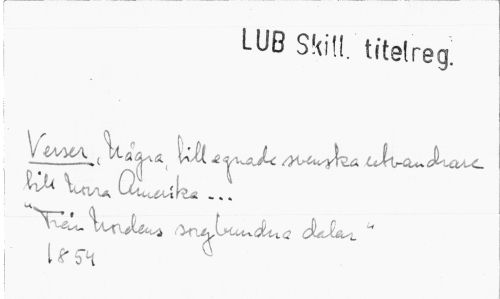 LUB Skill. titelreg.
Verser, Några, tillegnade svenska utvandrare
till Norra Amerika ...
"Från Nordens sorgbundna dalar"
1854